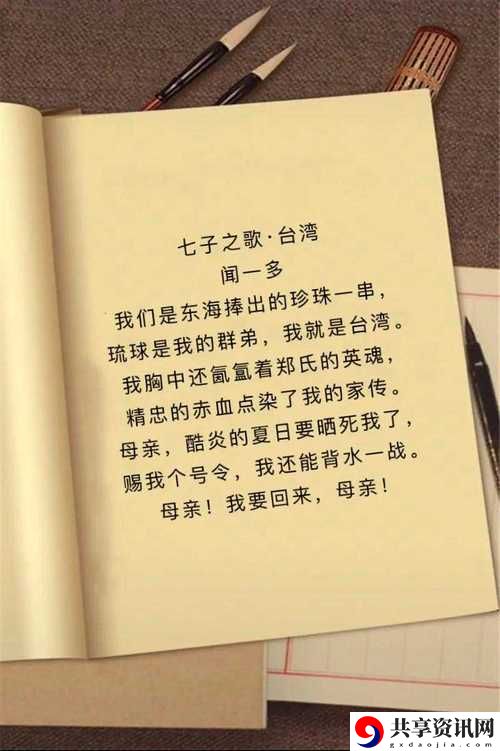 七子之歌·台湾
闻一多
我们是东海捧出的珍珠一串，
琉球是我的群弟，我就是台湾。
我胸中还氤氲着郑氏的英魂，
精忠的赤血点染了我的家传。
母亲，酷炎的夏日要晒死我了，
赐我个号令，我还能背水一战。
母亲！我要回来，母亲！
共享资讯网
gxdaojia.com